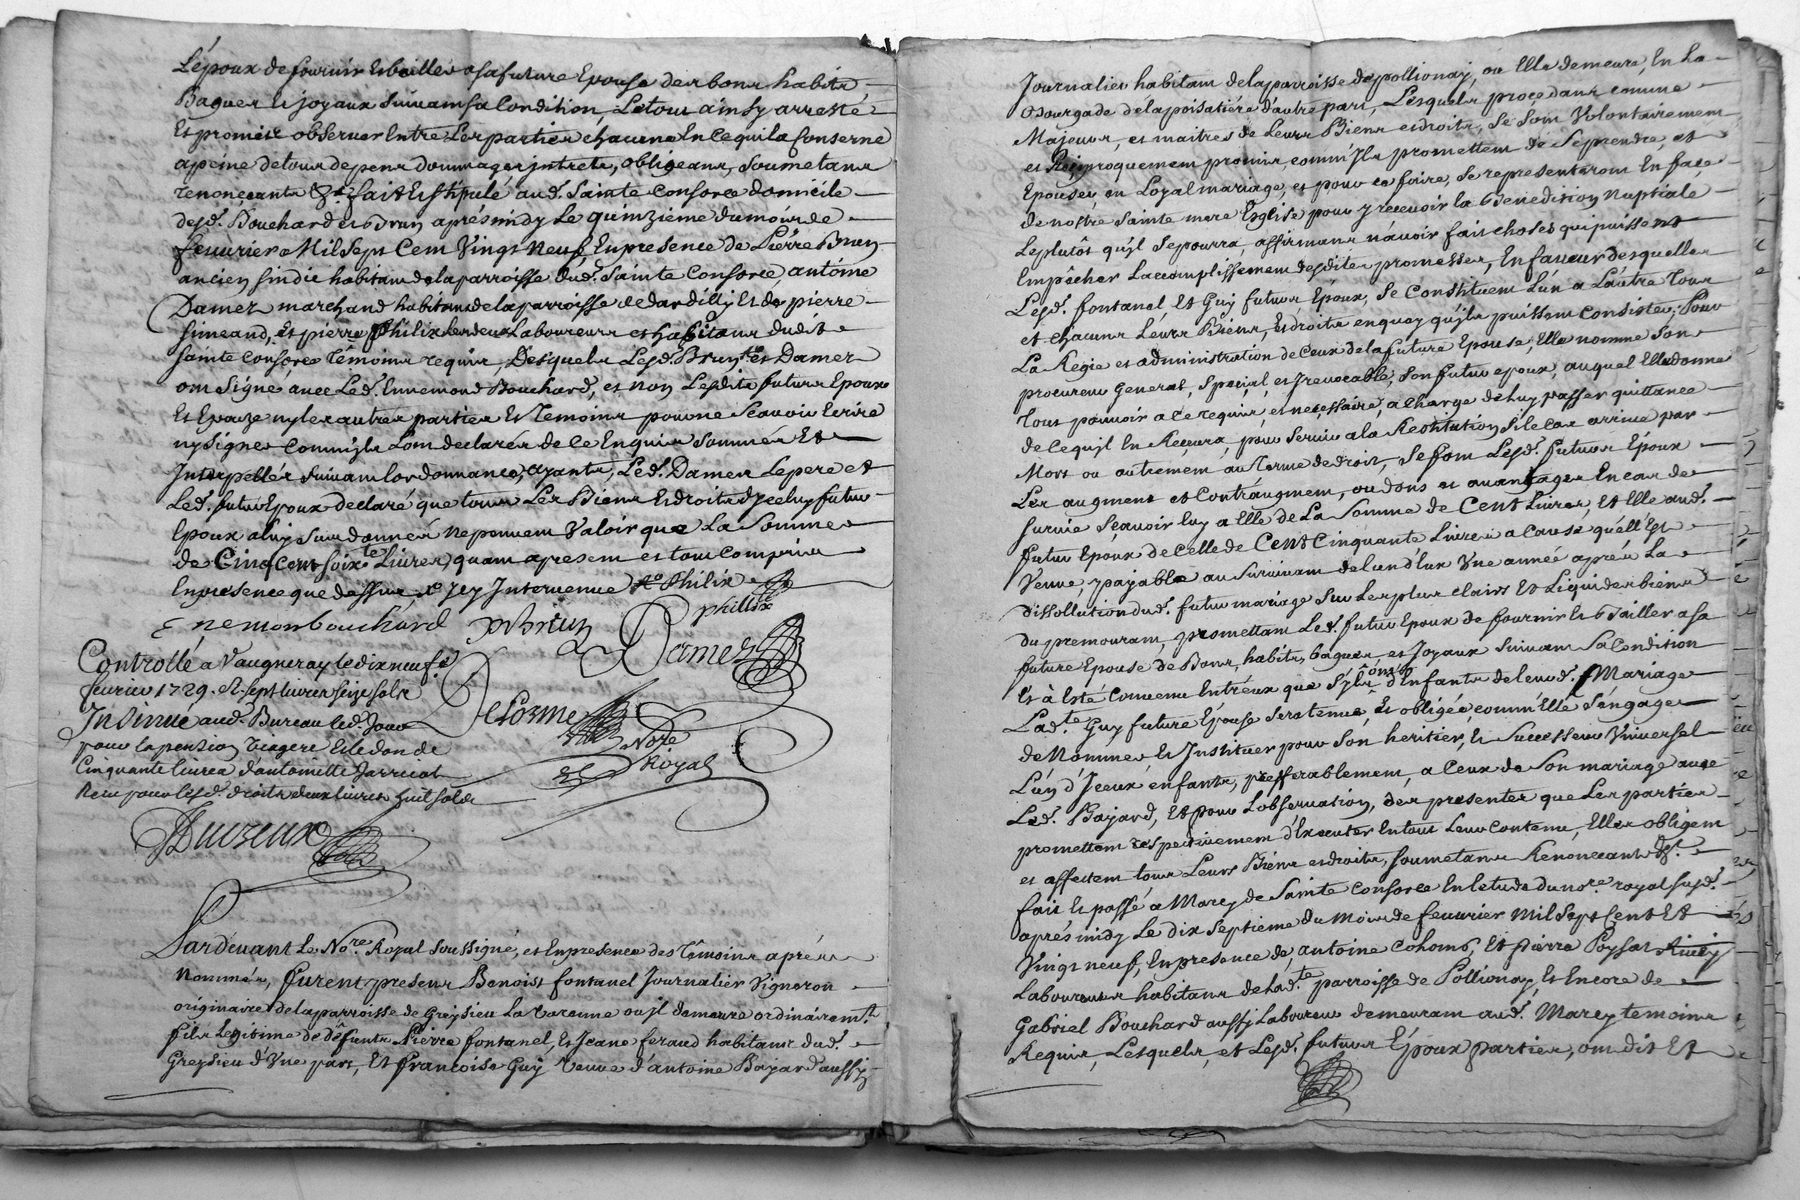 L'époux de fournir et bailler a sa future Epouse de bons habits
Bagues et joyaux suivant sa Condition, Le tout ainsy arresté
Et promis observer Entre Les parties chacune En ce qui La Conserne
a peine de tous depens dommages jntrets, obligeans, soumetans
renonceants &a fait Et stipulé aud. Sainte Consorce domicile
desd. Bouchard et Brun aprés midy Le quinzieme du mois de
fevurier Mil Sept Cent Vingt Neuf En presence de Pierre Brun
ancien sindic habitant de la parroisse dud. Sainte Consorce, antoine
Damez marchand habitant de la parroisse de dardilly Et de pierre
simeand, Et pierre Philix Les deux Laboureurs et habitans dudit
Sainte Consorce Témoins requis, Desquels Lesd. Brun et Damez
ont signé avec Led. Ennemond Bouchard, et non Lesdits futurs Epoux
Et Epouze ny les autres parties Et Temoins pour ne scavoir Ecrire
ny signer Comm'jls L'ont declarés de ce Enquis Sommés Et
Interpellés suivant L'ordonnance, ayants, Led. Damez Le pere et
Led. futur Epoux declaré que tous Les Biens Et droits d'jceluy futur
Epoux a luy sus donnés ne peuvent Valoir que La Somme
de Cinq Cent soixte Livres, quant a present et tout Compris
En presence que dessus, et Jcy Intervenue Philix
phillix
Enemon bouchard P Brun Damez
Controllé a Vaugneray le dix neuf
fevrier 1729. R. sept livres seize sols
Insinué aud. Bureau led. Jour
pour la pension Viagere Et le don de
Cinquante livres d'antoinette Jarricot
Receu pour lesd. droits deux livres huit sols
Delorme
Notre
Royal
Duizeux
Pardevant Le Nore. Royal soussigné, et En presence des Témoins aprés
Nommés, furent presens Benoist fontanel Journalier Vigneron
originaire de la parroisse de Greysieu La Varenne ou jl demeure ordinairemt.
fils Legitime de défunts Pierre fontanel, Et Jeane feraud habitans dud.
Greysieu d'Une part, Et francoise Guy Veuve d'antoine Bajard aussy
Journalier habitant de la parroisse de pollionay, ou Elle demeure, En La
Bourgade de la poisatiére d'autre part, Lesquels procedans comme
Majeurs, et maitres de Leurs Biens et droits, Se sont Volontairement
et Reciproquement promis, comm'jls promettent de se prendre, et
Epouser en Loyal mariage, et pour ce faire, se representeront En face
de nostre sainte mere Esglise pour y recevoir la Benediction nuptiale
Le plutôt qu'jl se pourra, affirmans n'avoir fait choses qui puissent
Empêcher L'accomplissement desdites promesses, En faveur desquelles
Lesd. fontanel Et Guy futurs Epoux, se Constituent L'un a L'autre tous
et chacuns Leurs Biens, Et droits en quoy qu'jls puissent Consister, Pour
La Regie et administration de Ceux de la future Epouse, Elle nomme son
procureur General, Special, et Jrevocable, son futur epoux, auquel Elle donne
Tous pouvoir a ce requis, et necessaire, a charge de luy passer quittance
de ce qu'jl En Recevra, pour servir a la Restitution, si le cas arrive par
Mort ou autrement au Terme de droit, Se font Lesd. futurs Epoux
Les augment et Contr'augment, ou dons et avantages En cas de
survie scavoir luy a Elle de La somme de Cent Livres, Et Elle aud.
futur Epoux de Celle de Cent Cinquante Livres a Cause qu'Ell'Est
Veuve, payable au survivant de l'un d'Eux Une année aprés La
dissollution dud. futur mariage sur Les plus clairs Et Liquides biens
du premourant, promettant Led. futur Epoux de fournir et bailler a sa
future Epouse de Bons, habits, bagues, et Joyaux suivant sa Condition
Et à Esté Convenu Entr'eux que s'jls ont d'Enfants de leurd. Mariage
Ladte Guy future Epouse sera tenue, Et obligée, comm'Elle s'engage
de Nommer Et Instituer pour son heritier, Et Successeur Universel
L'un d'Jceux enfants, prefferablement, a Ceux de son mariage avec
Led. Bajard, Et pour L'observation, des presentes que Les parties
promettent respectivement d'Executer En tout Leur contenu, Elles obligent
et affectent tous Leurs Biens et droits, soumetans Renonceants &a.
fait Et passé a Marcy de Sainte Consorce En L'etude du nore. royal susd.
aprés midy Le dix septieme du Mois de fevurier Mil Sept Cent Et
Vingt neuf, En presence de, antoine Cohomb, Et Pierre Poysat
Laboureurs habitans de Lade. parroisse de Pollionay, Et Encore de
Gabriel Bouchard aussy Laboureur demeurant aud. Marcy temoins
Requis, Lesquels, et Lesd. futurs Epoux parties, ont dit Et